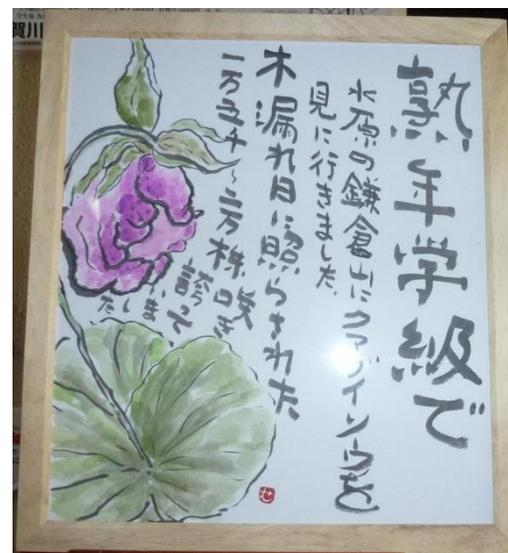 熟年学級で
水原の鎌倉山にクマガイソウを
見に行きました、
木漏れ日に照らされた
一万五千〜二万株咲き
誇って
いま
した
賀川